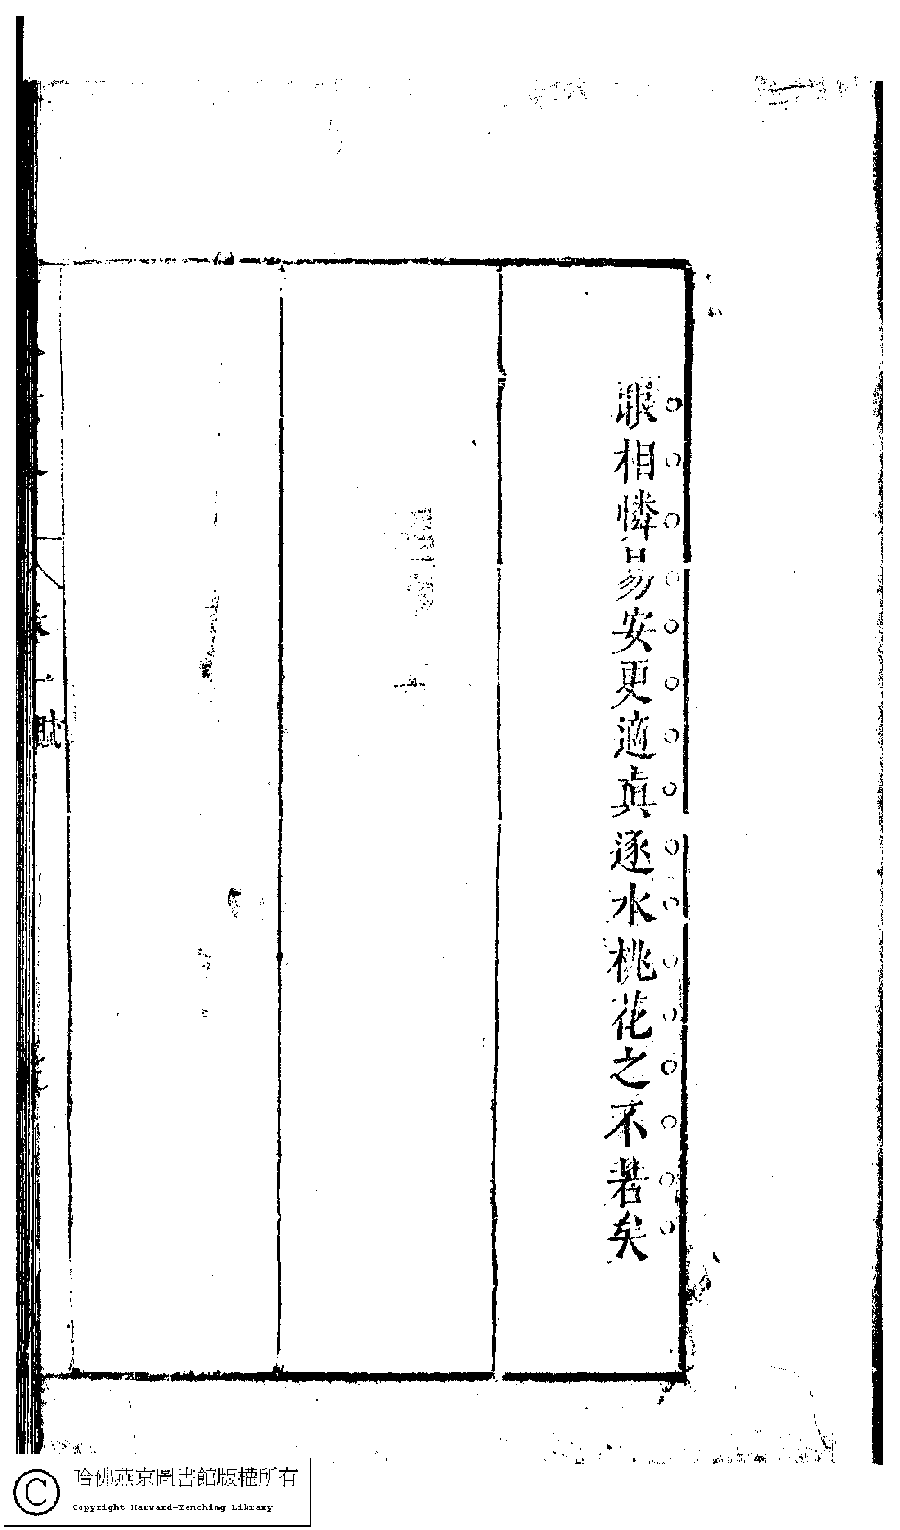 眼相憐易安更適真逐水桃花之不若矣
卷一 賦
哈佛燕京圖書館版權所有
Copyright Harvard-Yenching Library